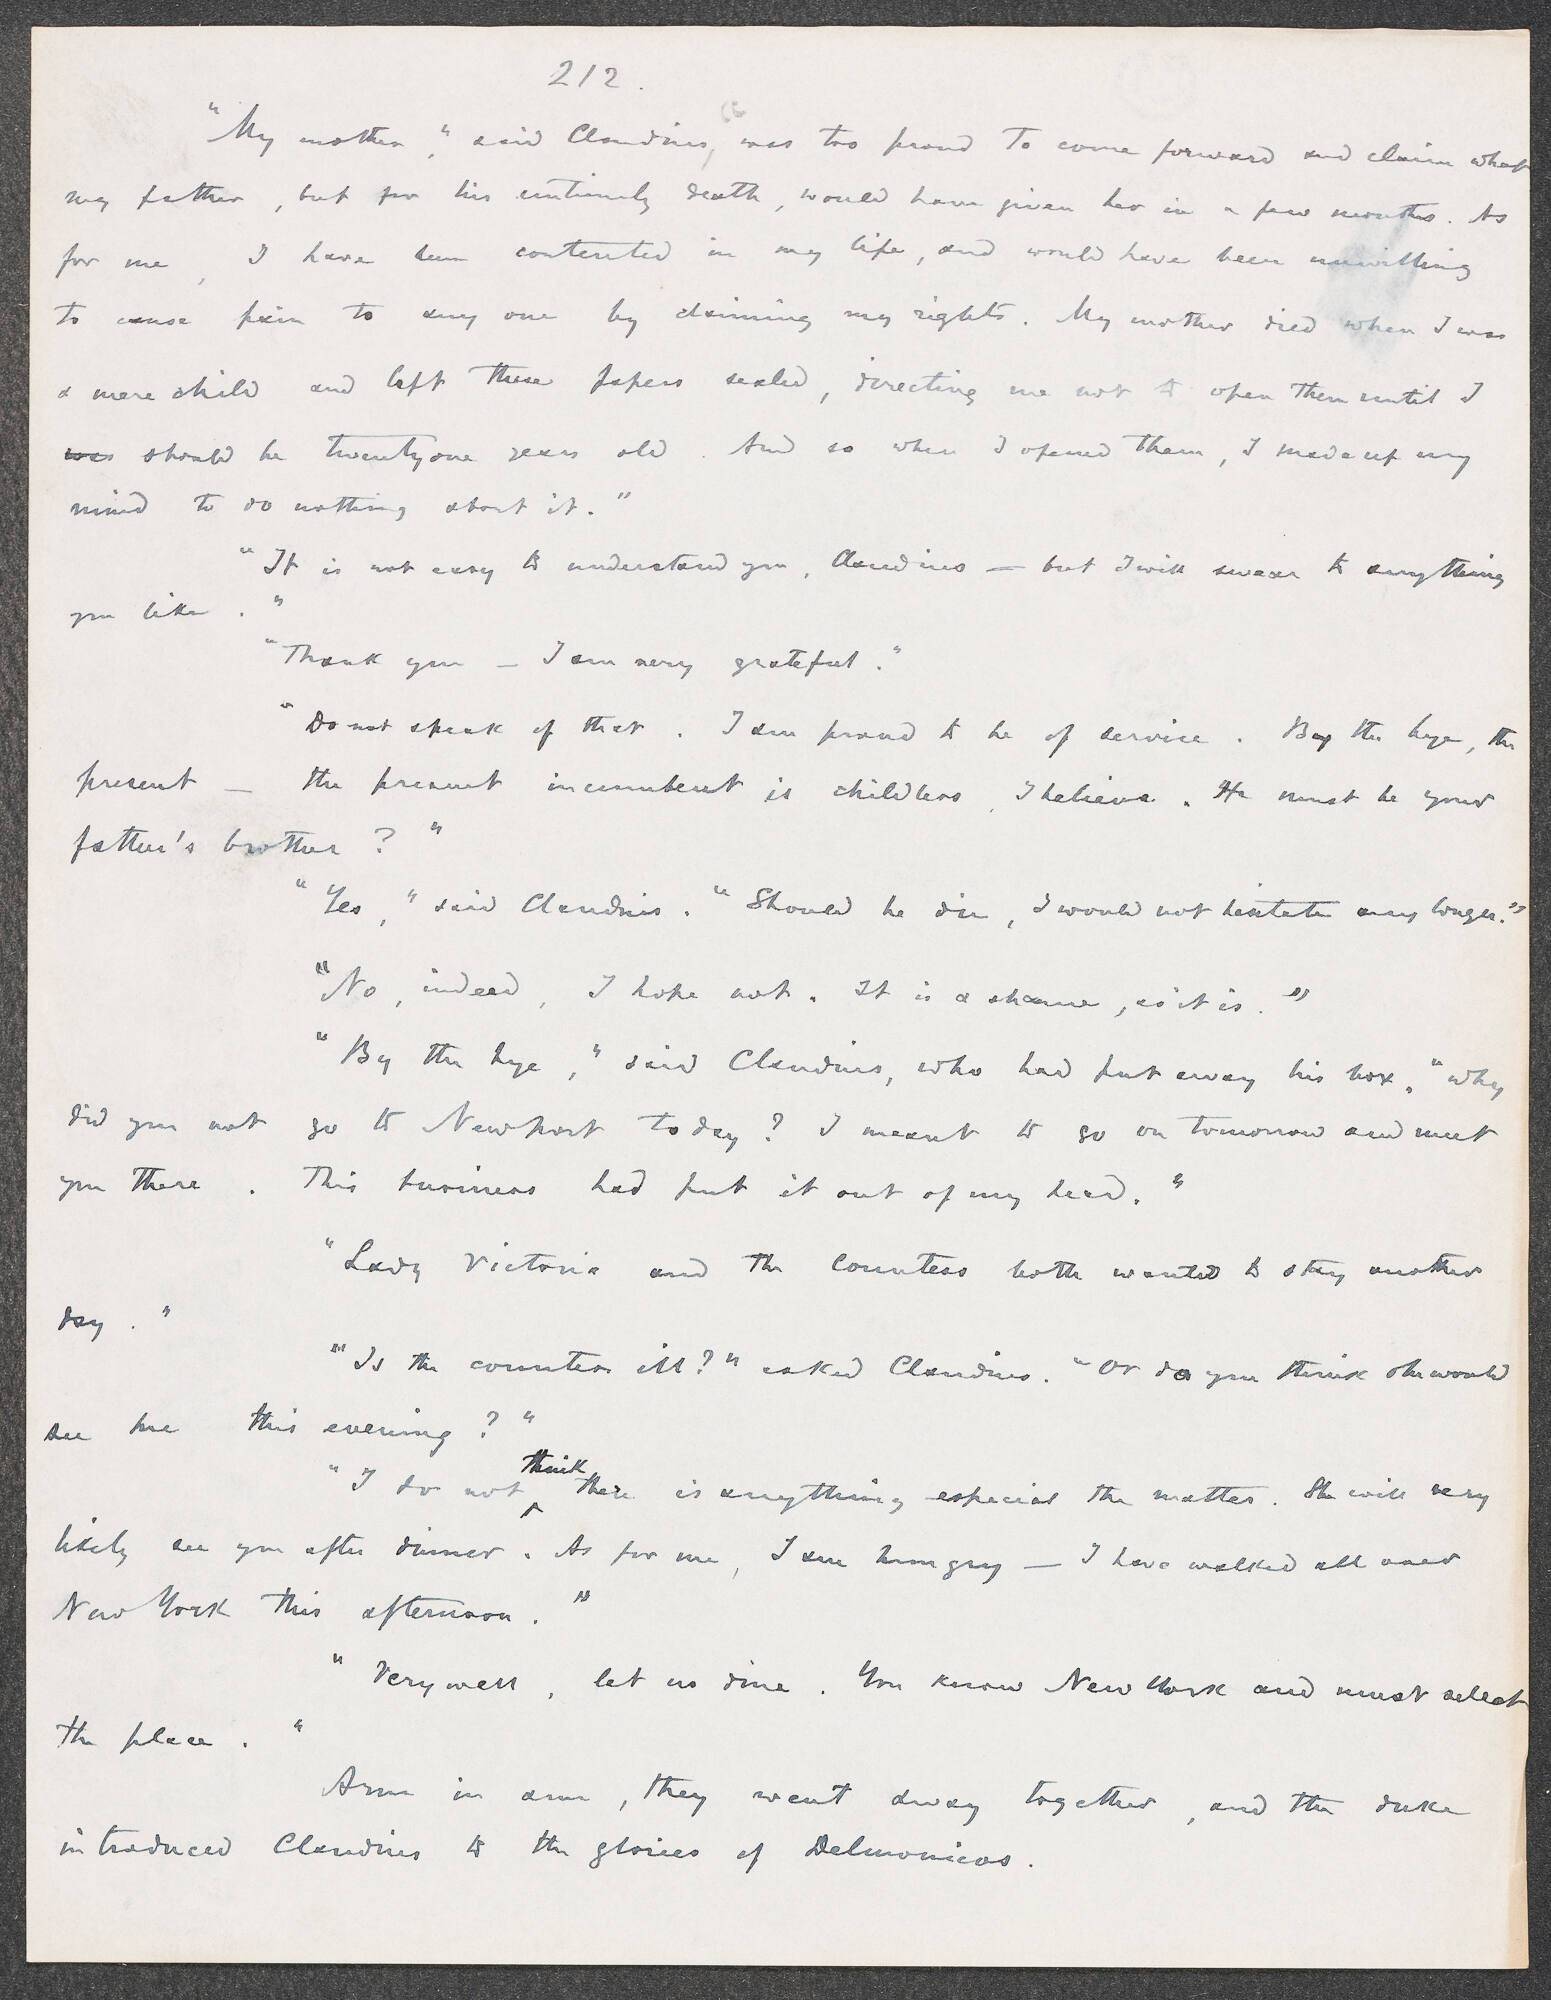 212.
"My mother," said Claudius, "was too proud to come forward and claim what
my father, but for his untimely death, would have given her in a few months. As
for me, I have been contented in my life, and would have been unwilling
to cause pain to any one by claiming my rights. My mother died when I was
a mere child and left these papers sealed, directing me not to open them until I
was should be twentyone years old. And so when I opened them, I made up my
mind to do nothing about it."
"It is not easy to understand you, Claudius — but I will swear to anything
you like."
"Thank you — I am very grateful."
"Do not speak of that. I am proud to be of service. By the bye, the
present — the present incumbent is childless, I believe. He must be your
father's brother?"
"Yes," said Claudius. "Should he die, I would not hesitate any longer."
"No, indeed, I hope not. It is a shame, as it is."
"By the bye," said Claudius, who had put away his box, "why
did you not go to Newport today? I meant to go on tomorrow and meet
you there. This business had put it out of my head."
"Lady Victoria and the Countess both wanted to stay another
day."
"Is the countess ill?" asked Claudius. "Or do you think she would
see me this evening?"
"I do not think there is anything especial the matter. She will very
likely see you after dinner. As for me, I am hungry — I have walked all over
New York this afternoon."
"Very well, let us dine. You know New York and must select
the place."
Arm in arm, they went away together, and the duke
introduced Claudius to the glories of Delmonicos.